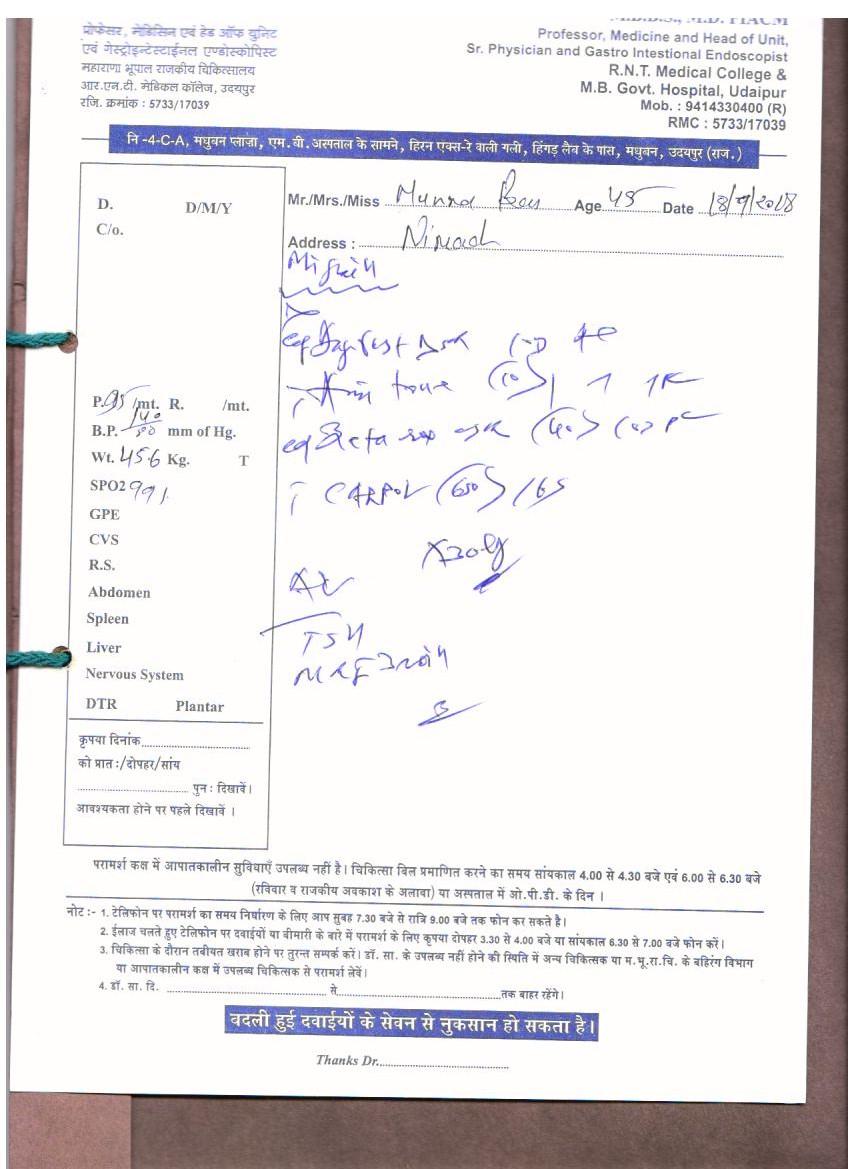 M.B.B.S., M.D. FIACM
प्रोफेसर, मेडिसिन एवं हेड ऑफ यूनिट
एवं गेस्ट्रोइन्टेस्टाईनल एण्डोस्कोपिस्ट
महाराणा भूपाल राजकीय चिकित्सालय
आर.एन.टी. मेडिकल कॉलेज, उदयपुर
रजि. क्रमांक : 5733/17039
Professor, Medicine and Head of Unit,
Sr. Physician and Gastro Intestional Endoscopist
R.N.T. Medical College &
M.B. Govt. Hospital, Udaipur
Mob. : 9414330400 (R)
RMC : 5733/17039
नि -4-C-A, मधुबन प्लाज़ा, एम.बी. अस्पताल के सामने, हिरन एक्स-रे वाली गली, हिंगड़ लैब के पास, मधुबन, उदयपुर (राज.)
Mr./Mrs./Miss Munna Age 45 Date 18/9/2018
Address :
D. D/M/Y
C/o.
P. 95 /mt. R. /mt.
B.P. mm of Hg.
Wt. 45.6 Kg. T
SPO2 99%
GPE
CVS
R.S.
Abdomen
Spleen
Liver
Nervous System
DTR Plantar
कृपया दिनांक
को प्रात :/दोपहर/सांय
पुन : दिखावें।
आवश्यकता होने पर पहले दिखावें ।
(10)
(40)
(650)
TSH
परामर्श कक्ष में आपातकालीन सुविधाएँ उपलब्ध नहीं है। चिकित्सा बिल प्रमाणित करने का समय सांयकाल 4.00 से 4.30 बजे एवं 6.00 से 6.30 बजे
(रविवार व राजकीय अवकाश के अलावा) या अस्पताल में ओ.पी.डी. के दिन ।
नोट :- 1. टेलिफोन पर परामर्श का समय निर्धारण के लिए आप सुबह 7.30 बजे से रात्रि 9.00 बजे तक फोन कर सकते है।
2. ईलाज चलते हुए टेलिफोन पर दवाईयों या बीमारी के बारे में परामर्श के लिए कृपया दोपहर 3.30 से 4.00 बजे या सांयकाल 6.30 से 7.00 बजे फोन करें।
3. चिकित्सा के दौरान तबीयत खराब होने पर तुरन्त सम्पर्क करें। डॉ. सा. के उपलब्ध नहीं होने की स्थिति में अन्य चिकित्सक या म.भू.रा.चि. के बहिरंग विभाग
या आपातकालीन कक्ष में उपलब्ध चिकित्सक से परामर्श लेवें।
4. डॉ. सा. दि. से तक बाहर रहेंगे।
बदली हुई दवाईयों के सेवन से नुकसान हो सकता है।
Thanks Dr.